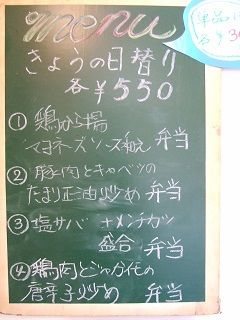 menu
きょうの日替り
各¥550
① 鶏から揚
マヨネーズソース和え 弁当
② 豚肉とキャベツの
たまり正油炒め 弁当
③ 塩サバ + メンチカツ
盛合 弁当
④ 鶏肉とジャガイモの
唐辛子炒め 弁当
単品は
各¥